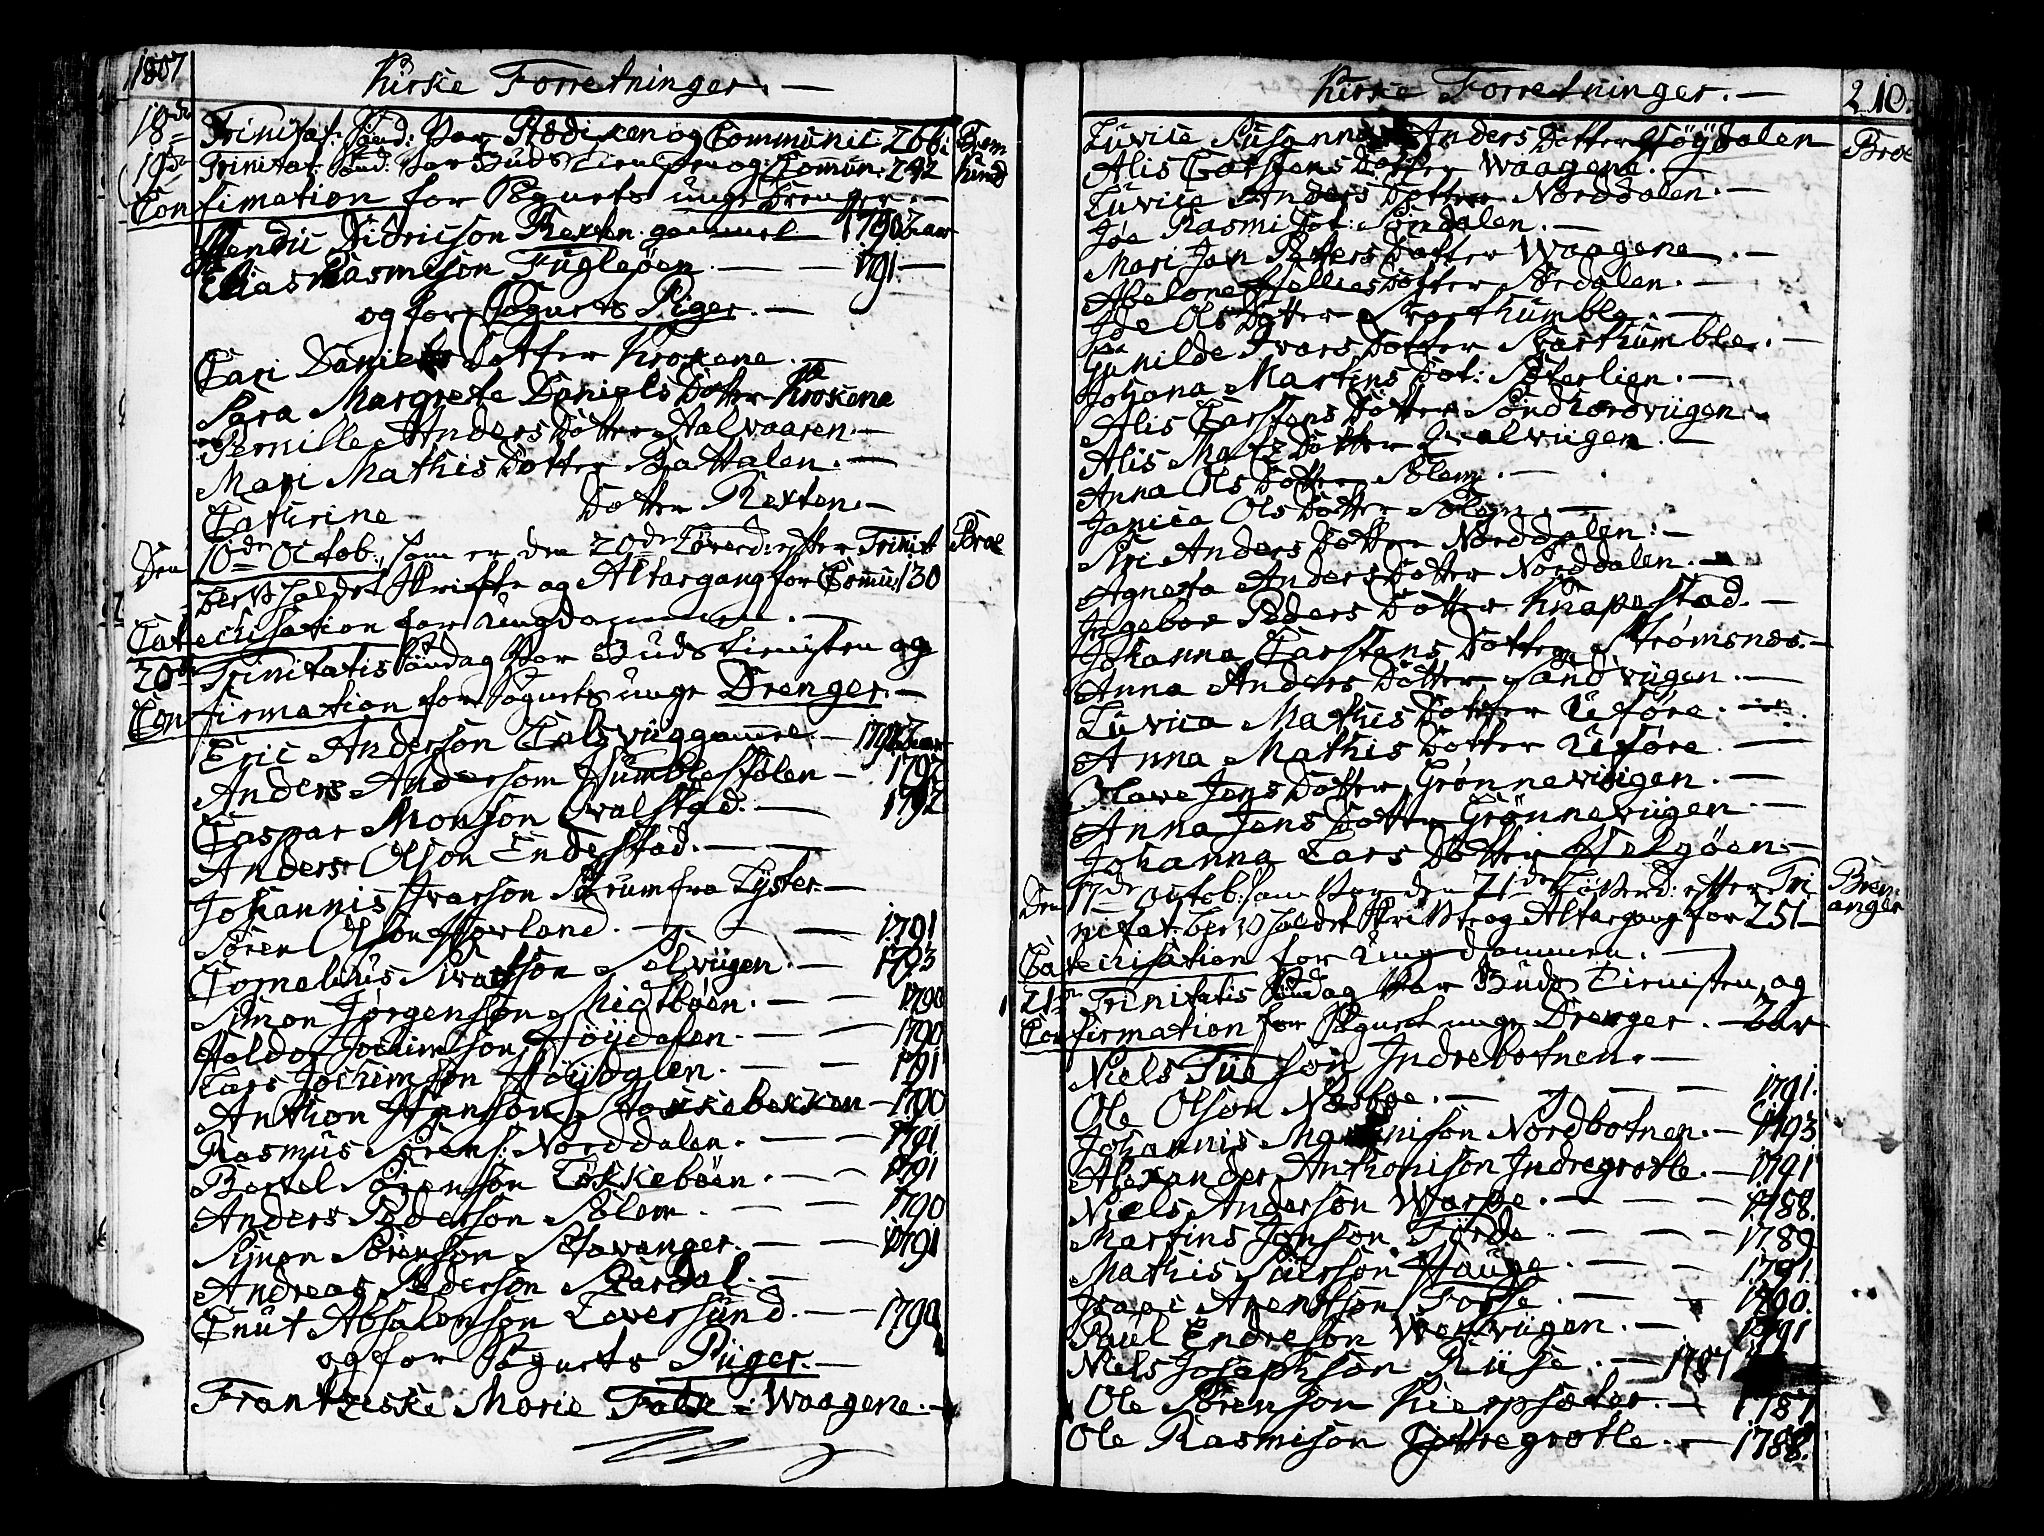 1807
Kirke Forretninger. —
18de Trinitat: Sønd: var Prædiken og Communic: 266: Brem
19de Trinitat: Sønd: var Gudstienesten og Comun: 292 Sund
Confirmation for Sognets unge Drenge. —
Didricson Rexten gammel 1790 3 aar
Elias Rasmison Fugløen — — 1791 —
og for Sognets Piger. —
Cari Daniels Dotter Krokene —
Sara Margrete Daniels Dotter Krokene
Pernille Anders Dotter Aalvaaren —
Mari Mathis Dotter Battalen. —
Cathrine Dotter Rexten —
Den 10de Octob: som er den 20de Løverd: efter Trinit Broe
blev holdet Skrifte og Altargang for Comu: 130
Catechisation for ungdommen. —
20de Trinitatis Søndag var Gudstienisten og
Confirmation for Sognets unge Drenger. —
Eric Anderson gammel — 1792 3 aar
Anders Anderson Humblestølen — 1792
Caspar Monson Qvalstad. — 1792
Anders Olson Endestad. — —
Johannis Ivarson Sørum fra Lyster. —
Søren Olson Hovland. — — — 1791
Cornelius Ivarson Selviigen. — 1793
Simon Jørgenson Midtbøen. — — 1790
Haldor Jochimson Høydalen. — — 1790
Lars Jochimson Høydalen. — — 1791
Anthon Hanson Stokkebekken — 1790
Rasmus Sørens: Norddalen. — — 1791
Bertel Sørenson Løkkebøen. — — 1791
Anders Pederson Solem. — — 1790
Simon Sørenson Stavanger. — — 1791
Andreas Pederson Skardal. —
Cnut Absalonson Leversund. — — 1790
og for Sognets Piiger. —
Frantzeske Marie Falck: Waagene. —
Kirke Forretninger. — 210.
Luvica Susanna Anders Dotter Høydalen Broe
Alis Carstens Dotter Waagene. —
Luvica Anders Dotter Norddalen. —
Joa Rasmis Dot: Sørdalen. —
Mari Jan Petters Dotter Waagene. —
Abelone Dotter Sørdalen. —
Joe Ols Dotter Svarthumble. —
Gunilde Ivars Dotter Svarthumble. —
Johana Martins Dot: Sæterlien. —
Alis Carstens Dotter Søndhordviigen. —
Alis Matz Dotter Hvalviigen. —
Anna Ols Dotter Solem. —
Janica Ols Dotter Solem. —
Siri Anders Dotter Norddalen: —
Agneta Anders Dotter Norddalen. —
Ingebor Peders Dotter Knapestad. —
Johanna Carstens Dotter Strømsnes. —
Anna Anders Dotter Sandviigen. —
Luvica Mathis Dotter Uføre. —
Anna Mathis Dotter Uføre. —
Olave Jens Dotter Grønneviigen. —
Anna Jens Dotter Grønneviigen —
Johanna Lars Dotter Helgøen —
Den 17de Octob: som var den 21de Løverd: efter Tri Brem-
nitat: blev holdet Skrifte og Altargang for 251 — anger
Catechisation for ungdommen. —
21de Trinitatis Søndag var Guds Tienisten og
Confirmation for Sognets unge Drenger. —
Niels Son Indrebotnen. —
Ole Olson Nesboe. — — — 1791.
Johannis Son Nordbotnen. — 1793
Alexander Anthonison Indregrotle. — 1791
Niels Anderson Warpe. — — 1788.
Martins Jonson Førde. — — — 1789
Mathis Siverson Hauge. — — 1791.
Isaac Arentson Fosse. — — 1790.
Paul Endreson — 1791
Niels Josephson Riise. — 1787
Ole Sørenson — 1787
Ole Rasmison Yttregrotle. — 1788.